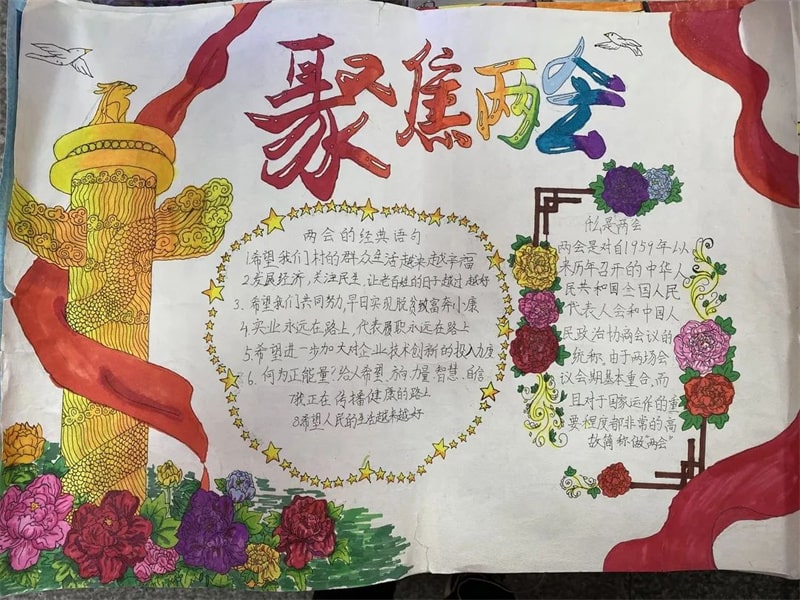 聚焦两会
两会的经典语句
1希望我们村的群众生活越来越幸福
2发展经济,关注民生,让老百姓的日子越过越好
3、希望我们共同努力,早日实现脱贫致富奔小康
4、实业永远在路上,代表履职永远在路上
5、希望进一步加大对企业技术创新的投入力度
6、何为正能量?给人希望、方向、力量、智慧、自信
7我正在传播健康的路上
8希望人民的生活越来越好
什么是两会
两会是对自1959年以
来历年召开的中华人
民共和国全国人民
代表人会和中国人
民政治协商会议的
统称,由于两场会
议会期基本重合,而
且对于国家运作的重
要程度都非常的高
故简称做"两会"